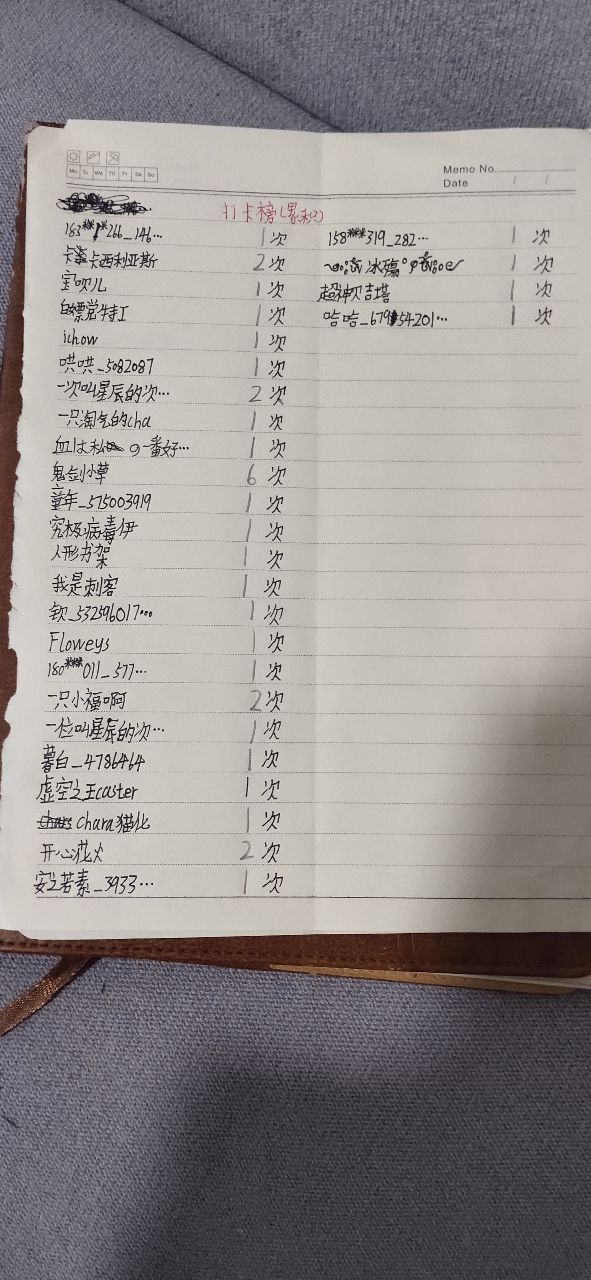 Mo Tu We Th Fr Sa Su
Memo No.
Date / /
打卡榜(累积)
183***266_146… 1次
卡卡西利亚斯 2次
宝吹儿 1次
白嫖党特工 1次
ichow 1次
哄哄_5082087 1次
一次叫星辰的次… 2次
一只淘气的cha 1次
血は私の一番好… 1次
鬼剑小草 6次
童年_575003919 1次
究极病毒伊 1次
人形书架 1次
我是刺客 1次
钦_532596017… 1次
Floweys 1次
180***011_577… 1次
一只小福啊 2次
一位叫星辰的次… 1次
薯白_4786464 1次
虚空之王caster 1次
chara猫化 1次
开心花火 2次
安之若素_3933… 1次
158***319_282… 1次
冰殇 1次
超神吹吉塔 1次
哈哈_67954201… 1次